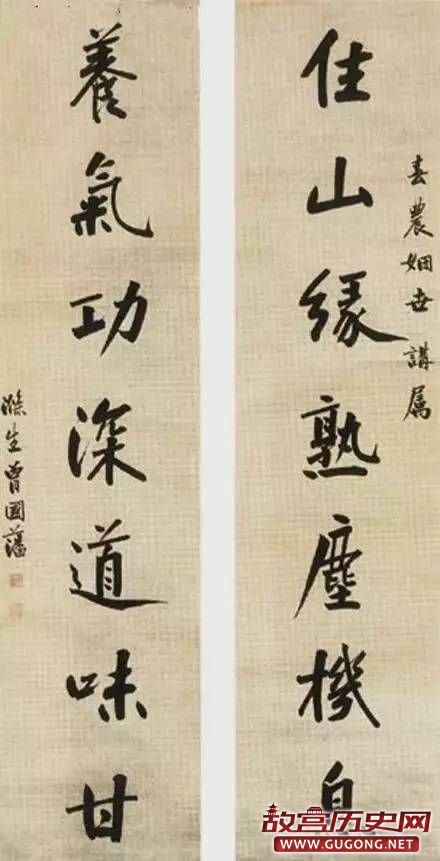 春農姻世講屬
住山緣熟塵機
養氣功深道味甘
滌生曾國藩
故宫历史网
WWW.GUGONG.NET